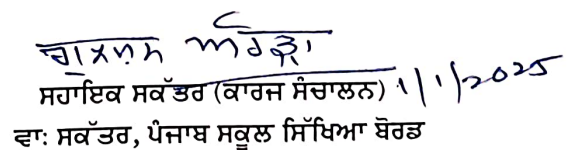 ਅਰੋੜਾ
ਸਹਾਇਕ ਸਕੱਤਰ (ਕਾਰਜ ਸੰਚਾਲਨ) 1/1/2025
ਵਾ: ਸਕੱਤਰ, ਪੰਜਾਬ ਸਕੂਲ ਸਿੱਖਿਆ ਬੋਰਡ